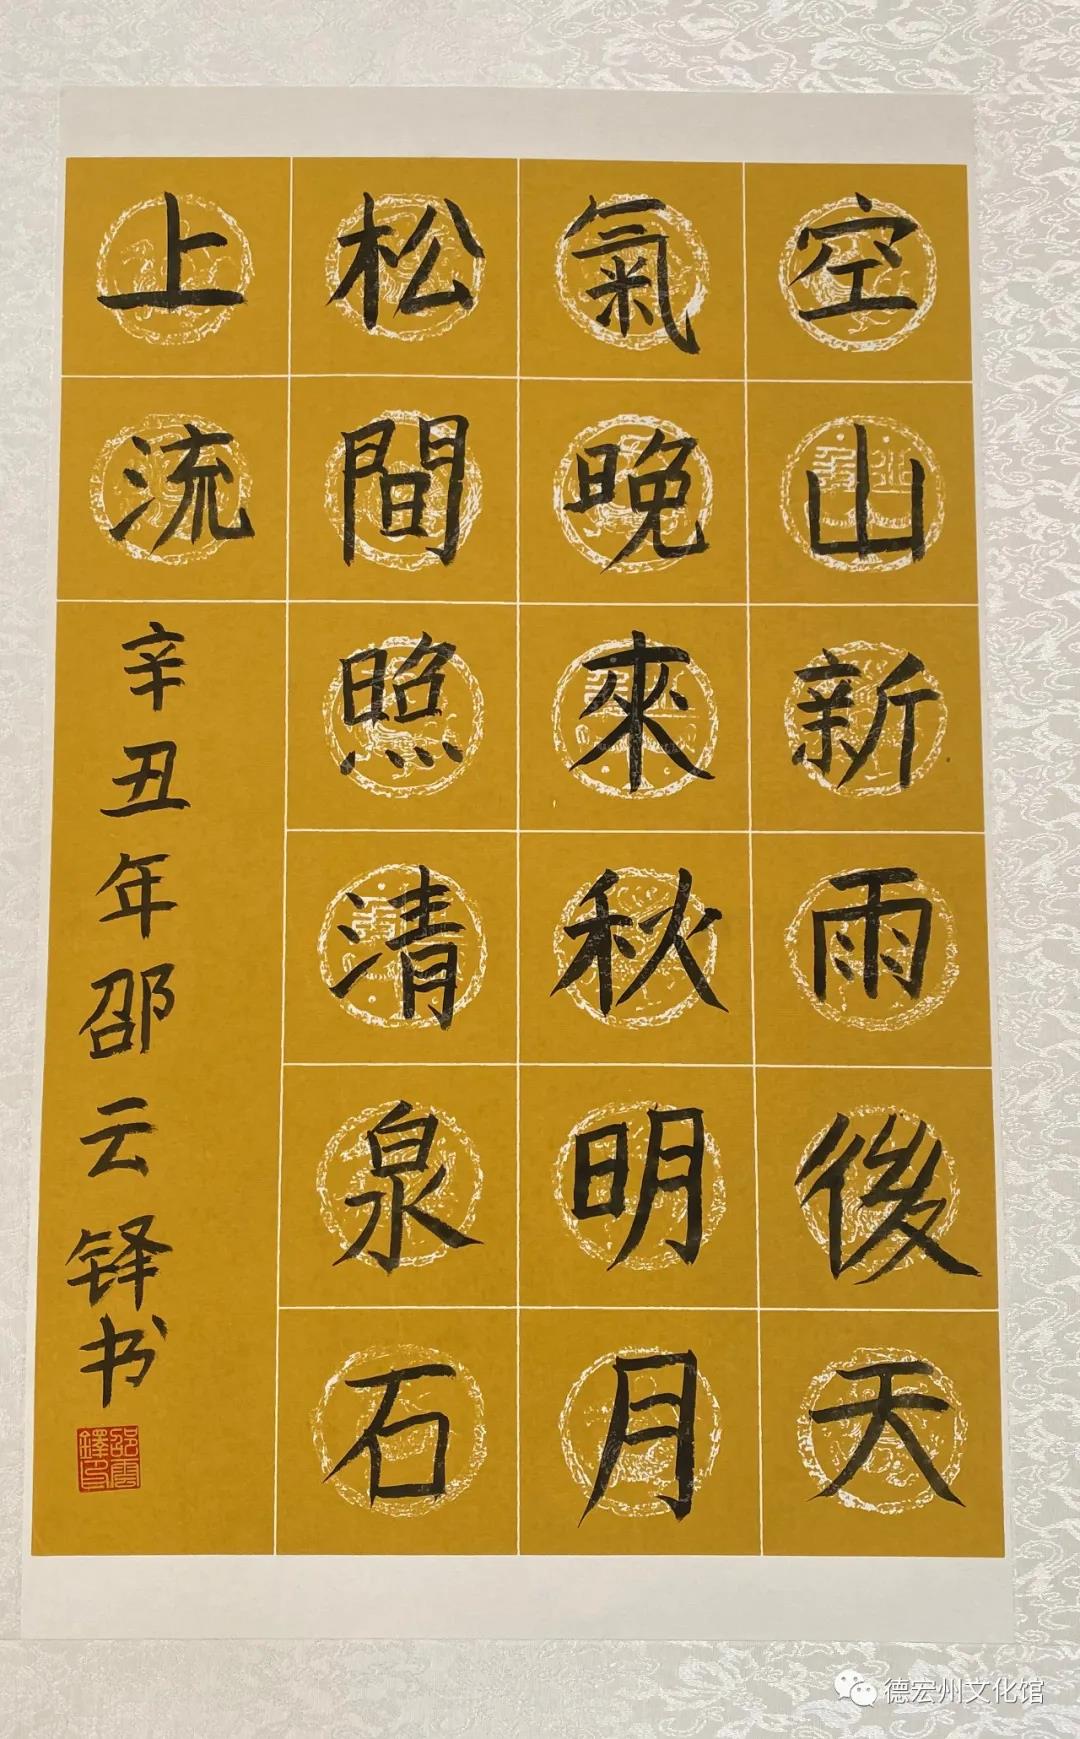 空山新雨後天
氣晚來秋明月
松間照清泉石
上流
辛丑年邵云铎书
邵雲鐸印
德宏州文化馆